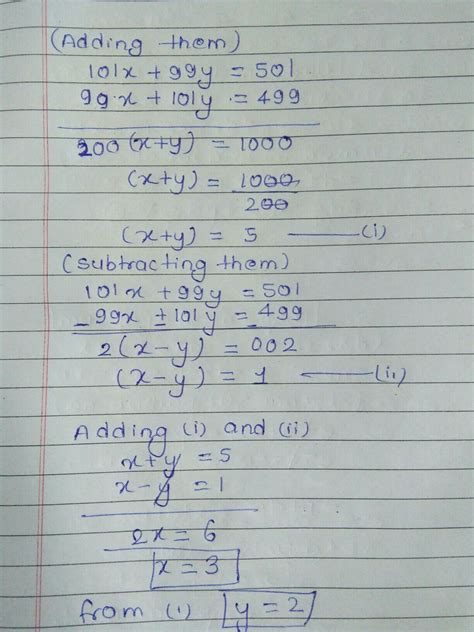 (Adding them)
101x + 99y = 501
99x + 101y = 499
200 (x+y) = 1000
(x+y) = 1000
200
(x+y) = 5 —— (i)
(subtracting them)
101x + 99y = 501
- 99x ± 101y = - 499
2(x-y) = 002
(x-y) = 1 —— (ii)
Adding (i) and (ii)
x+y = 5
x-y = 1
2x = 6
x = 3
from (i) y = 2